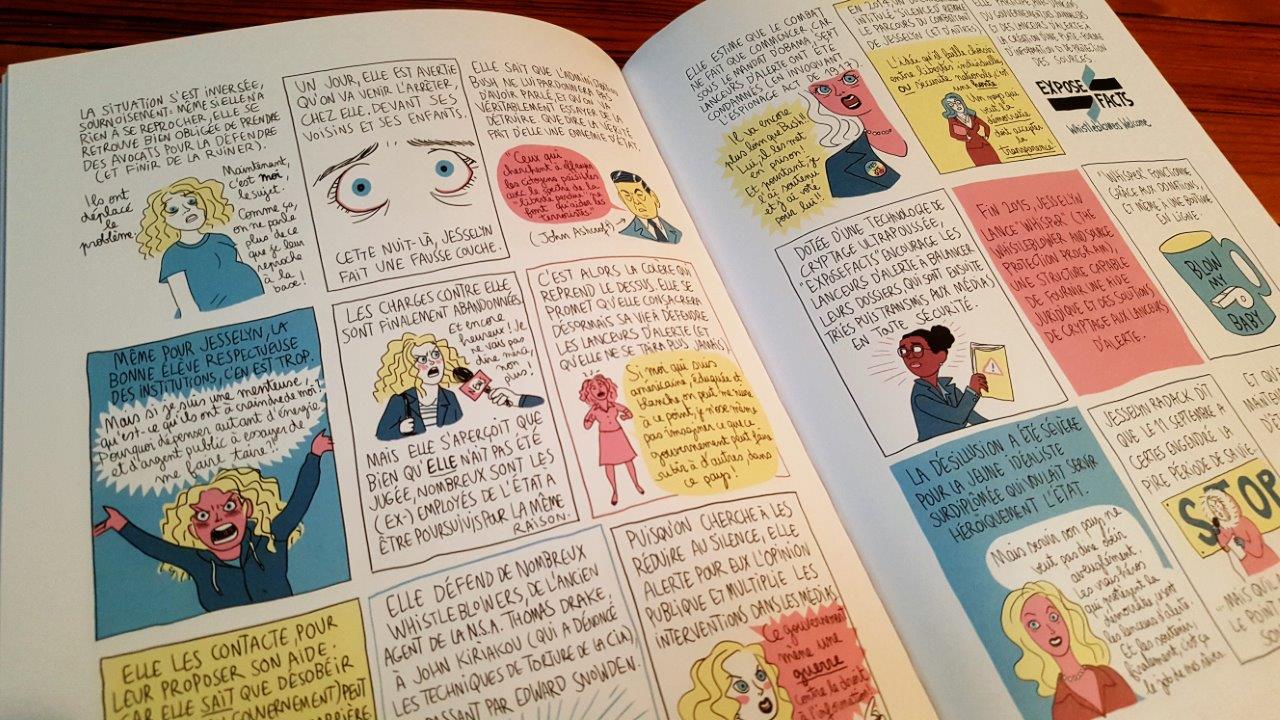 LA SITUATION S'EST INVERSÉE,
SOURNOISEMENT. MÊME SI ELLE N'A
RIEN À SE REPROCHER, ELLE SE
RETROUVE BIEN OBLIGÉE DE PRENDRE
DES AVOCATS POUR LA DÉFENDRE
(ET FINIR DE LA RUINER).
Ils ont
déplacé
le
problème.
Maintenant,
c'est moi,
le sujet.
Comme ça,
on ne parle
plus de ce
que je leur
reproche
à la
base !
UN JOUR, ELLE EST AVERTIE
QU'ON VA VENIR L'ARRÊTER,
CHEZ ELLE, DEVANT SES
VOISINS ET SES ENFANTS.
CETTE NUIT-LÀ, JESSELYN
FAIT UNE FAUSSE COUCHE.
ELLE SAIT QUE L'ADMINISTRATION
BUSH NE LUI PARDONNERA PAS
D'AVOIR PARLÉ ET QU'ON VA
VÉRITABLEMENT CHERCHER À LA
DÉTRUIRE. QUE DIRE LA VÉRITÉ
FAIT D'ELLE UNE ENNEMIE D'ÉTAT.
"Ceux qui
cherchent à effrayer
les citoyens paisibles
avec le spectre de la
"liberté perdue" ne
font qu'aider les
terroristes"
(John Ashcroft)
MÊME POUR JESSELYN, LA
BONNE ÉLÈVE RESPECTUEUSE
DES INSTITUTIONS, C'EN EST TROP.
Mais si je suis une menteuse,
qu'est-ce qu'ils ont à craindre de moi ?
Pourquoi dépenser autant d'énergie
et d'argent public à essayer de
me faire taire ?!
LES CHARGES CONTRE ELLE
SONT FINALEMENT ABANDONNÉES.
Et encore
heureux ! Je
ne vais pas
dire merci,
non
plus !
MAIS ELLE S'APERÇOIT QUE
BIEN QU'ELLE N'AIT PAS ÉTÉ
JUGÉE, NOMBREUX SONT LES
(EX-) EMPLOYÉS DE L'ÉTAT À
ÊTRE POURSUIVIS POUR LA MÊME
RAISON.
C'EST ALORS LA COLÈRE QUI
REPREND LE DESSUS. ELLE SE
PROMET QU'ELLE CONSACRERA
DÉSORMAIS SA VIE À DÉFENDRE
LES LANCEURS D'ALERTE (ET
QU'ELLE NE SE TAIRA PLUS JAMAIS).
Si moi qui suis
américaine, éduquée et
blanche on peut me nuire
à ce point, je n'ose même
pas imaginer ce que ce
gouvernement peut faire
subir à d'autres, dans
ce pays !
ELLE LES CONTACTE POUR
LEUR PROPOSER SON AIDE.
CAR ELLE SAIT QUE DÉSOBÉIR
GOUVERNEMENT) PEUT
ELLE DÉFEND DE NOMBREUX
WHISTLEBLOWERS, DE L'ANCIEN
AGENT DE LA N.S.A. THOMAS DRAKE,
À JOHN KIRIAKOU (QUI A DÉNONCÉ
LES TECHNIQUES DE TORTURE DE LA CIA),
PASSANT PAR EDWARD SNOWDEN.
PUISQU'ON CHERCHE À LES
RÉDUIRE AU SILENCE, ELLE
ALERTE POUR EUX L'OPINION
PUBLIQUE ET MULTIPLIE LES
INTERVENTIONS DANS LES MÉDIAS.
Ce gouvernement
mène une
guerre
contre le droit
à l'information !
ELLE ESTIME QUE LE COMBAT
NE FAIT QUE COMMENCER CAR
SOUS LE MANDAT D'OBAMA, SEPT
LANCEURS D'ALERTE ONT ÉTÉ
CONDAMNÉS (EN INVOQUANT
L'ESPIONAGE ACT DE 1917).
Il va encore
plus loin que Bush !
Lui, il les met
en prison !
Et pourtant, je
l'ai soutenu
et j'ai voté
pour lui !
EN 2014, UN
INTITULÉ "SILENCED" RETRACE
LE PARCOURS DU COMBATTANT
DE JESSELYN (ET D'AUTRES)
L'idée qu'il faille choisir
entre libertés individuelles
ou sécurité nationale, c'est
une honte.
Un pays qui
veut la
démocratie
doit accepter
la
transparence !
DU GOUVERNEMENT, JOURNALISTES
ET LANCEURS D'ALERTE À
LA CRÉATION D'UNE PLATE-FORME
D'INFORMATION ET DE PROTECTION
DES SOURCES.
EXPOSE
FACTS
Whistleblowers Welcome
DOTÉE D'UNE TECHNOLOGIE DE
CRYPTAGE ULTRAPOUSSÉE,
"EXPOSEFACTS" ENCOURAGE LES
LANCEURS D'ALERTE À BALANCER
LEURS DOSSIERS, QUI SONT ENSUITE
TRIÉS PUIS TRANSMIS AUX MÉDIAS
EN TOUTE SÉCURITÉ.
FIN 2015, JESSELYN
LANCE "WHISPER" (THE
WHISTLEBLOWER AND SOURCE
PROTECTION PROGRAM),
UNE STRUCTURE CAPABLE
DE FOURNIR UNE AIDE
JURIDIQUE ET DES SOLUTIONS
DE CRYPTAGE AUX LANCEURS
D'ALERTE.
"WHISPER" FONCTIONNE
GRÂCE AUX DONATIONS,
ET MÊME À UNE BOUTIQUE
EN LIGNE.
BLOW
MY
BABY
LA DÉSILLUSION A ÉTÉ SÉVÈRE
POUR LA JEUNE IDÉALISTE
SURDIPLÔMÉE QUI VOULAIT SERVIR
HÉROÏQUEMENT L'ÉTAT.
Mais servir son pays ne
veut pas dire obéir
aveuglément.
Les vrais héros
qui protègent la
démocratie, c'est
les lanceurs d'alerte.
Et les soutenir,
finalement, c'est ça
le job de mes rêves.
JESSELYN RADACK DIT
QUE LE 11 SEPTEMBRE A
CERTES ENGENDRÉ LA
PIRE PÉRIODE DE SA VIE...
STOP